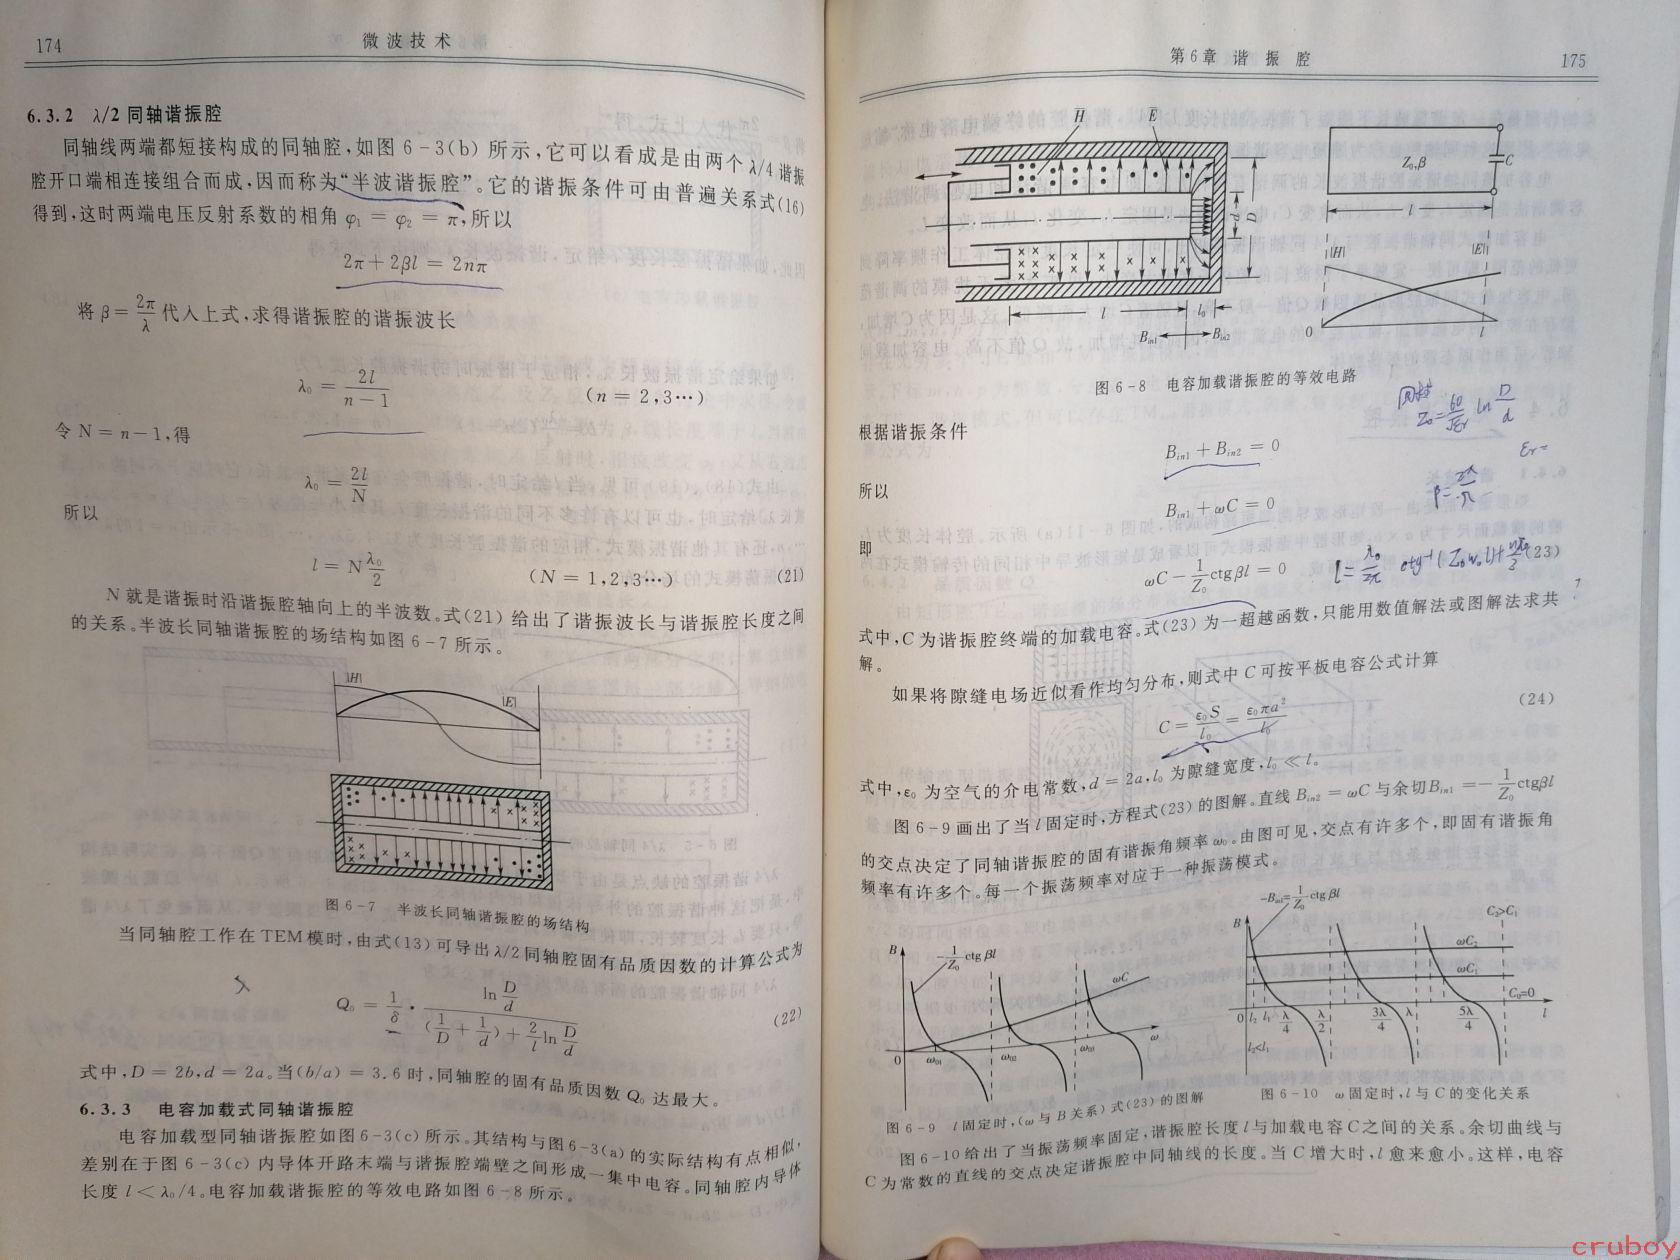 174
微波技术
6.3.2 λ/2 同轴谐振腔
同轴线两端都短接构成的同轴腔,如图 6-3(b) 所示,它可以看成是由两个 λ/4 谐振
腔开口端相连接组合而成,因而称为“半波谐振腔”。它的谐振条件可由普遍关系式(16)
得到,这时两端电压反射系数的相角 φ₁ = φ₂ = π,所以
2π + 2βl = 2nπ
将 β = 2π/λ 代入上式,求得谐振腔的谐振波长
λ₀ = 2l/(n-1) (n = 2,3…)
令 N = n-1,得
λ₀ = 2l/N
所以
l = N λ₀/2 (N = 1,2,3…) (21)
N 就是谐振时沿谐振腔轴向上的半波数。式(21) 给出了谐振波长与谐振腔长度之间
的关系。半波长同轴谐振腔的场结构如图 6-7 所示。
|H|
|E|
图 6-7 半波长同轴谐振腔的场结构
当同轴腔工作在 TEM 模时,由式(13) 可导出 λ/2 同轴腔固有品质因数的计算公式为
Q₀ = 1/δ · ln(D/d) / ((1/D + 1/d) + 2/l ln D/d) (22)
式中,D = 2b,d = 2a。当(b/a) = 3.6 时,同轴腔的固有品质因数 Q₀ 达最大。
6.3.3 电容加载式同轴谐振腔
电容加载型同轴谐振腔如图6-3(c)所示。其结构与图6-3(a)的实际结构有点相似,
差别在于图 6-3(c) 内导体开路末端与谐振腔端壁之间形成一集中电容。同轴腔内导体
长度 l < λ₀/4。电容加载谐振腔的等效电路如图 6-8 所示。
第6章 谐振腔
175
H E
d D
l l₀
Bin1 Bin2
Z₀,β
C
l
|H| |E|
0 l
图 6-8 电容加载谐振腔的等效电路
同轴
Z₀ = 60/√εr ln D/d
εr=
根据谐振条件
Bin1 + Bin2 = 0
所以
Bin1 + ωC = 0
即
ωC - 1/Z₀ ctgβl = 0 (23)
式中,C 为谐振腔终端的加载电容。式(23) 为一超越函数,只能用数值解法或图解法求共
解。
如果将隙缝电场近似看作均匀分布,则式中 C 可按平板电容公式计算
C = ε₀S/l₀ = ε₀πa²/l₀ (24)
式中,ε₀ 为空气的介电常数,d = 2a,l₀ 为隙缝宽度,l₀ ≪ l。
图 6-9 画出了当 l 固定时,方程式(23) 的图解。直线 Bin2 = ωC 与余切Bin1 = - 1/Z₀ ctgβl
的交点决定了同轴谐振腔的固有谐振角频率 ω₀。由图可见,交点有许多个,即固有谐振角
频率有许多个。每一个振荡频率对应于一种振荡模式。
B
1/Z₀ ctg βl
ωC
0 ω01 ω02 ω03 ω
图 6-9 l 固定时,(ω 与 B 关系) 式(23) 的图解
-Bin1= 1/Z₀ ctg βl
B
C₂>C₁
ωC₂
ωC₁
C₀=0
0 l₂ l₁ λ/4 λ/2 3λ/4 λ 5λ/4 l
l₂<l₁
图 6-10 ω 固定时,l 与 C 的变化关系
图 6-10 给出了当振荡频率固定,谐振腔长度 l 与加载电容 C 之间的关系。余切曲线与
C 为常数的直线的交点决定谐振腔中同轴线的长度。当 C 增大时,l 愈来愈小。这样,电容
cruboy